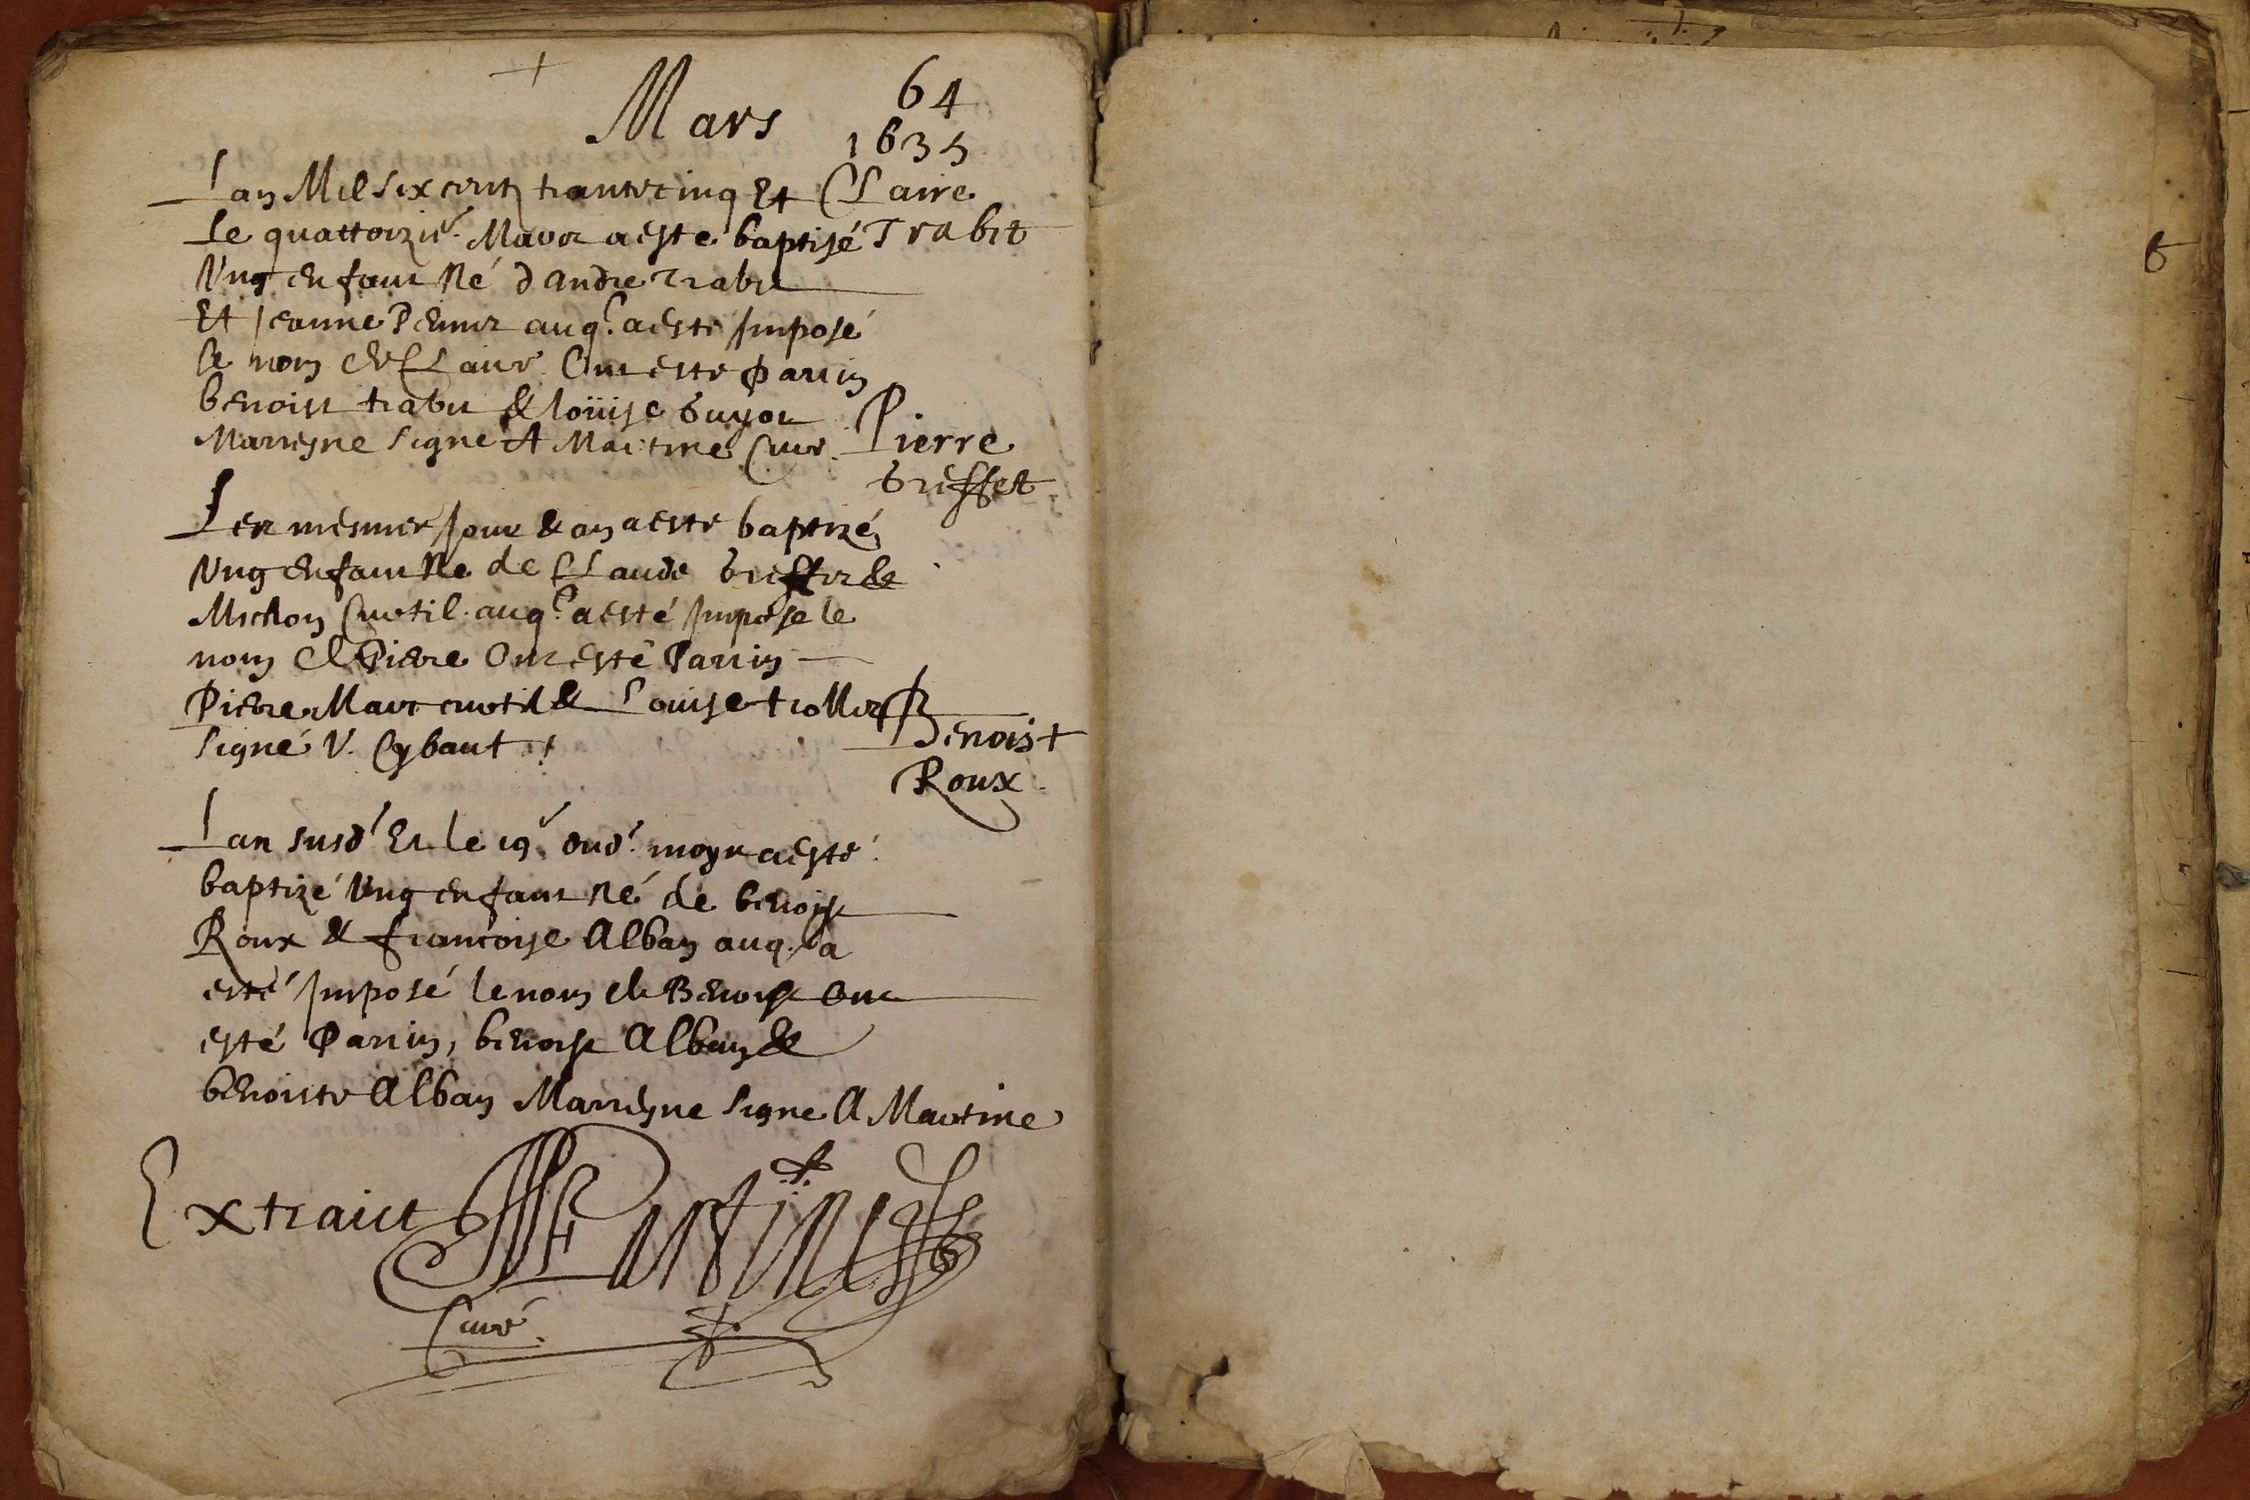 Mars
64
1635
Lan Mil six centz trante cinq Et
Claire
Trabet
Le quattorzie. Mars a este baptisé
Ung enfant Né d Andre Trabet
Et Jeanne auq. a esté Imposé
le nom de Claire Ont esté Parrin
benoist trabet & loüise guyot
Marreyne Signe A Martine Curé
Pierre
griffet
Les mesmes Jour & an a esté baptizé
Ung Enfant Né de Claude griffet &
Michon Curtil auq. a esté Impose le
nom de Pierre Ont esté Parrin
Pierre Marc curtil & Louise trollier
Signé V. Cybaut
Benoist
Roux
Lan susd Et le 19. dud. moys a esté
baptizé Ung enfant Né de benoist
Roux & francoise Alban auq. a
esté Imposé le nom de Benoist Ont
esté Parrin, benoist Alban &
benoiste Alban Marreyne Signe A Martine
Extraict Martine
Curé